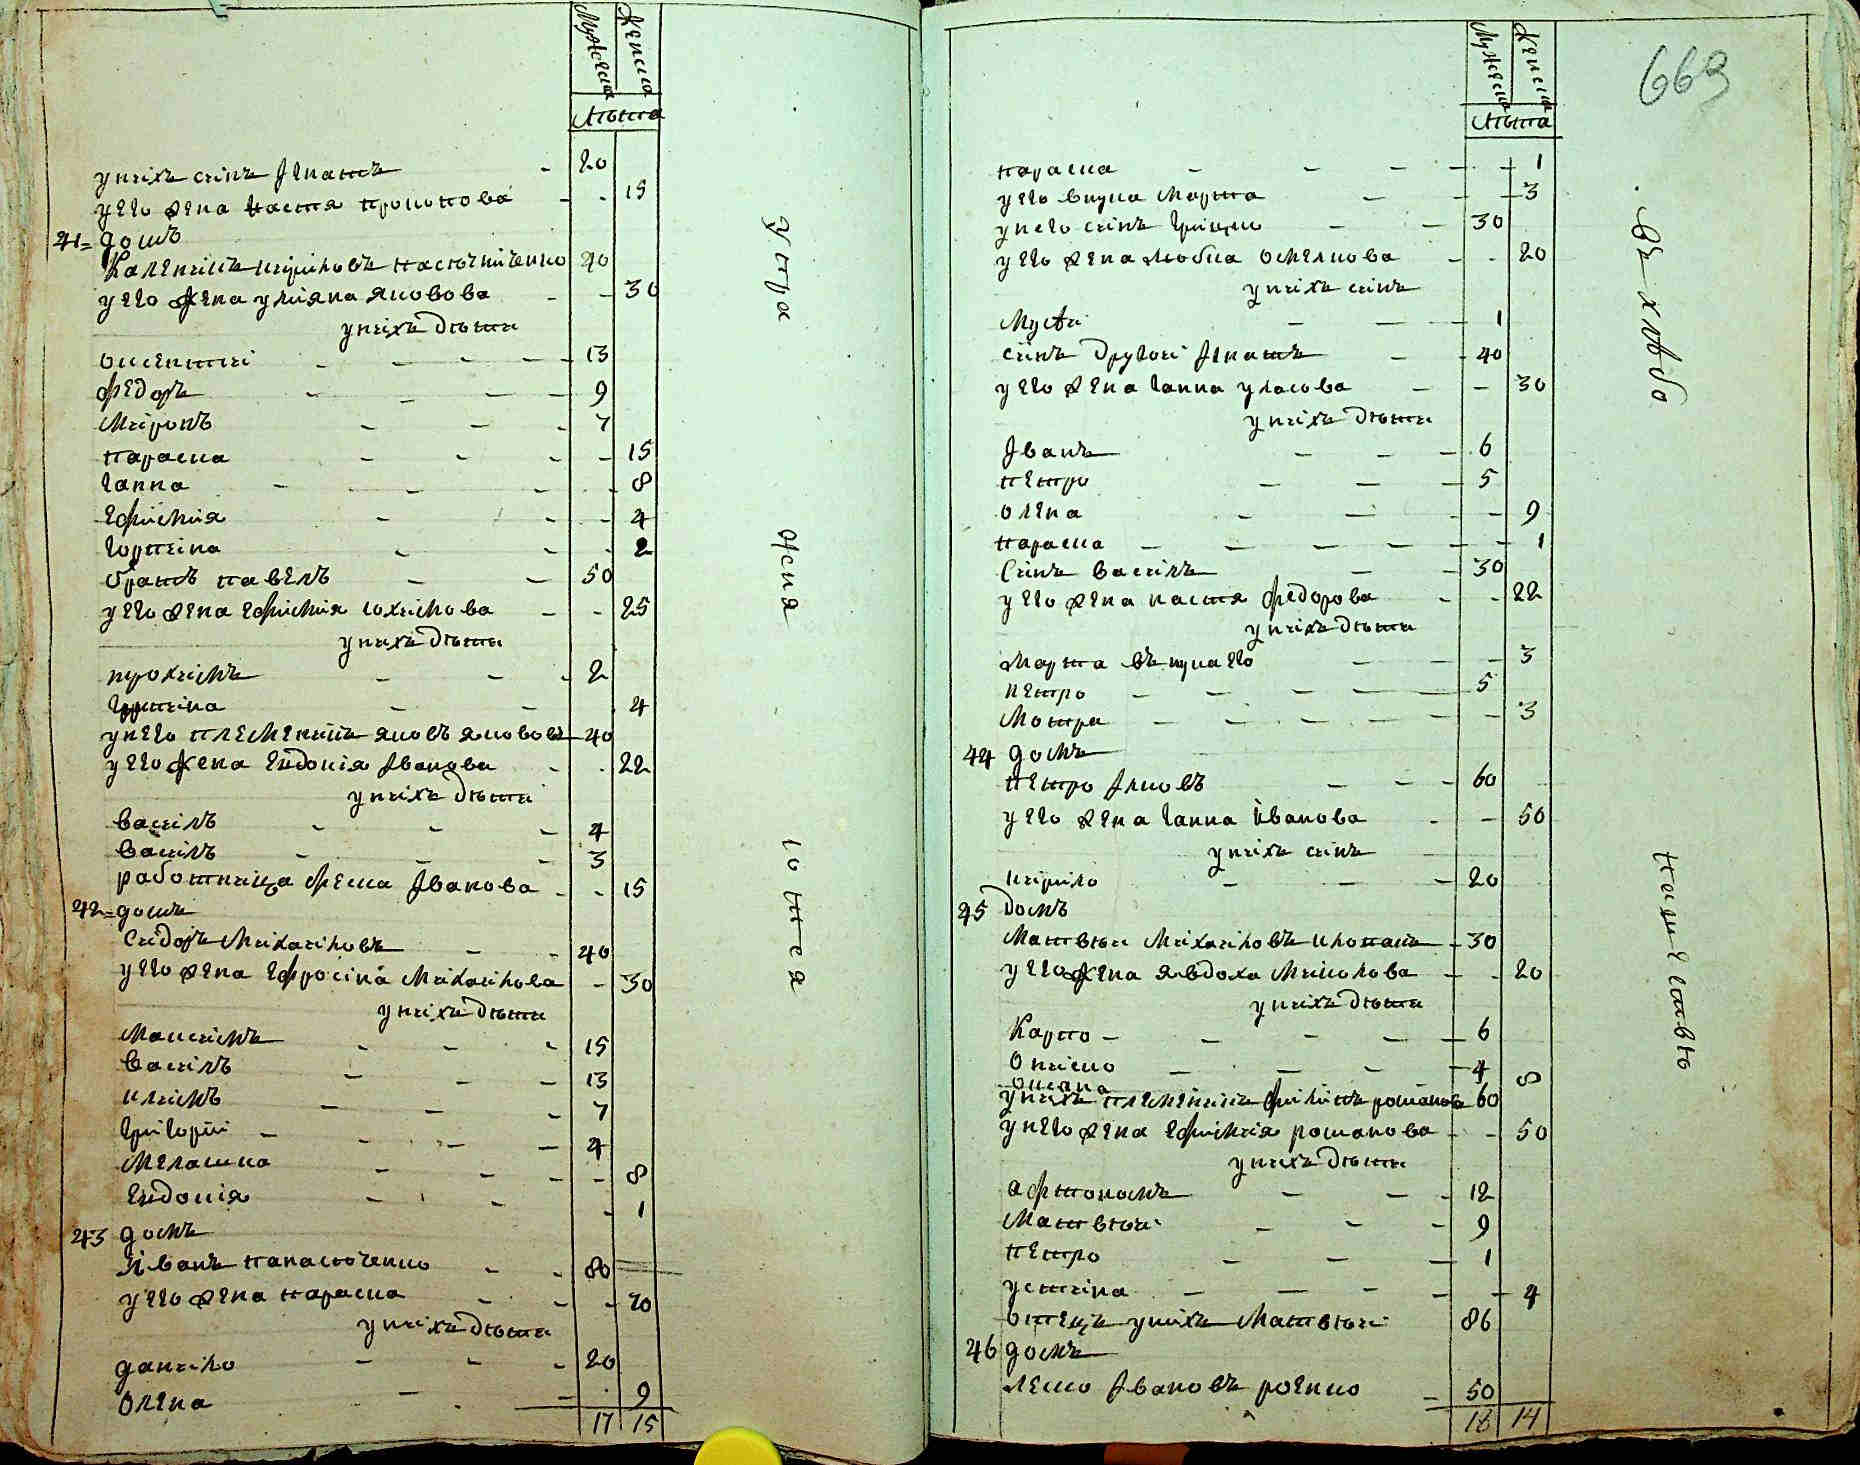 Мужеска
Женска
лѣта
у нихъ синъ Iгнатъ - 20
у его жена Настя прокопова - - 15
41= домъ
Каленикъ кириловъ пасѣчниченко 40
у его жена уляна яковова - - 30
у нихъ дѣти
оксентиi - - - - 13
федоръ - - - - 9
Миронъ - - - 7
параска - - - - 15
ганна - - - - 8
ефимия - - - 4
горпина - - - 2
братъ павелъ - - 50
у его жена ефимия iохимова - - 25
у нихъ дѣти
прохимъ - - - 2
горпина - - 4
у него племеникъ яковъ якововъ 40
у его жена Евдокiя Iванова - - 22
у нихъ дѣти
василъ - - - 4
василъ - - - 3
работница феска Iванова - - 15
42= домъ
сидоръ Михаиловъ - - 40
у его жена ефросина Михаилова - 30
у нихъ дѣти
Максимъ - - - 15
василъ - - - 13
климъ - - 7
григорiй - - - - 4
Мелашка - - - - 8
Евдокiя - - - - 1
43 домъ
Иванъ панасюченко - - 80
у его жена параска - - - 70
у нихъ дѣти
данило - - - 20
олена - - - 9
17 15
У тра
ження
ю тея
669
Мужеска
Женска
лѣта
параска - - - - - 1
у его внука Марта - - - 3
у него синъ грицко - - 30
у его жена любка омелкова - - 20
у нихъ синъ
Мусѣй - - - 1
синъ другой Iгнатъ - - 40
у его жена ганна уласова - - 30
у нихъ дѣти
Iванъ - - - 6
петро - - - 5
олена - - - - 9
параска - - - - - - 1
синъ василъ - - 30
у его жена настя федорова - - 22
у нихъ дѣти
Марта внука его - - - 3
петро - - - - - 5
Мотря - - - - - - 3
44 домъ
петро Iлковъ - - - 60
у его жена ганна Iванова - - 50
у нихъ синъ
кирило - - - 20
45 домъ
Матвѣи Михаиловъ клопакъ - 30
у его жена явдоха Миколова - - 20
у нихъ дѣти
Карпо - - - - - 6
Ониско - - - - - 4
оксана 8
у нихъ племеникъ филипъ романовъ 60
у него жена ефимия романова - - 50
у нихъ дѣти
афтономъ - - - 12
Матвѣи - - - 9
петро - - - 1
устина - - - - - 4
отецъ у нихъ Матвѣи 86
46 домъ
леско Iвановъ роенко - 50
18 14
въ хлѣбо